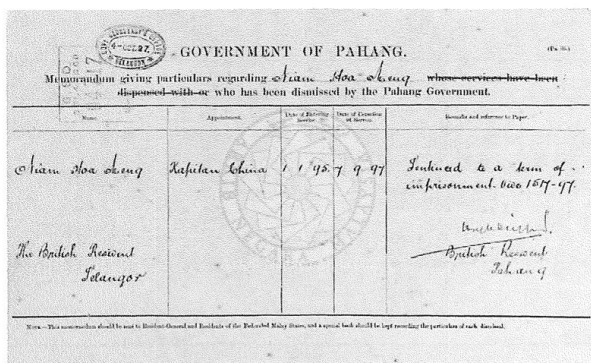 4-OCT.97
SELANGOR
GOVERNMENT OF PAHANG.
Memorandum giving particulars regarding Niam Hoa Meng whose services have been
dispensed with or who has been dismissed by the Pahang Government.
Name. Appointment. Date of Entering Service. Date of Cessation of Service. Remarks and reference to Paper.
Niam Hoa Meng Kapitan China 1 1 95. 7 9 97 Sentenced to a term of
imprisonment
The British Resident
Selangor
British Resident
Pahang
NOTE.—This memorandum should be sent to Resident-General and Residents of the Federated Malay States, and a special book should be kept recording the particulars of each dismissal.